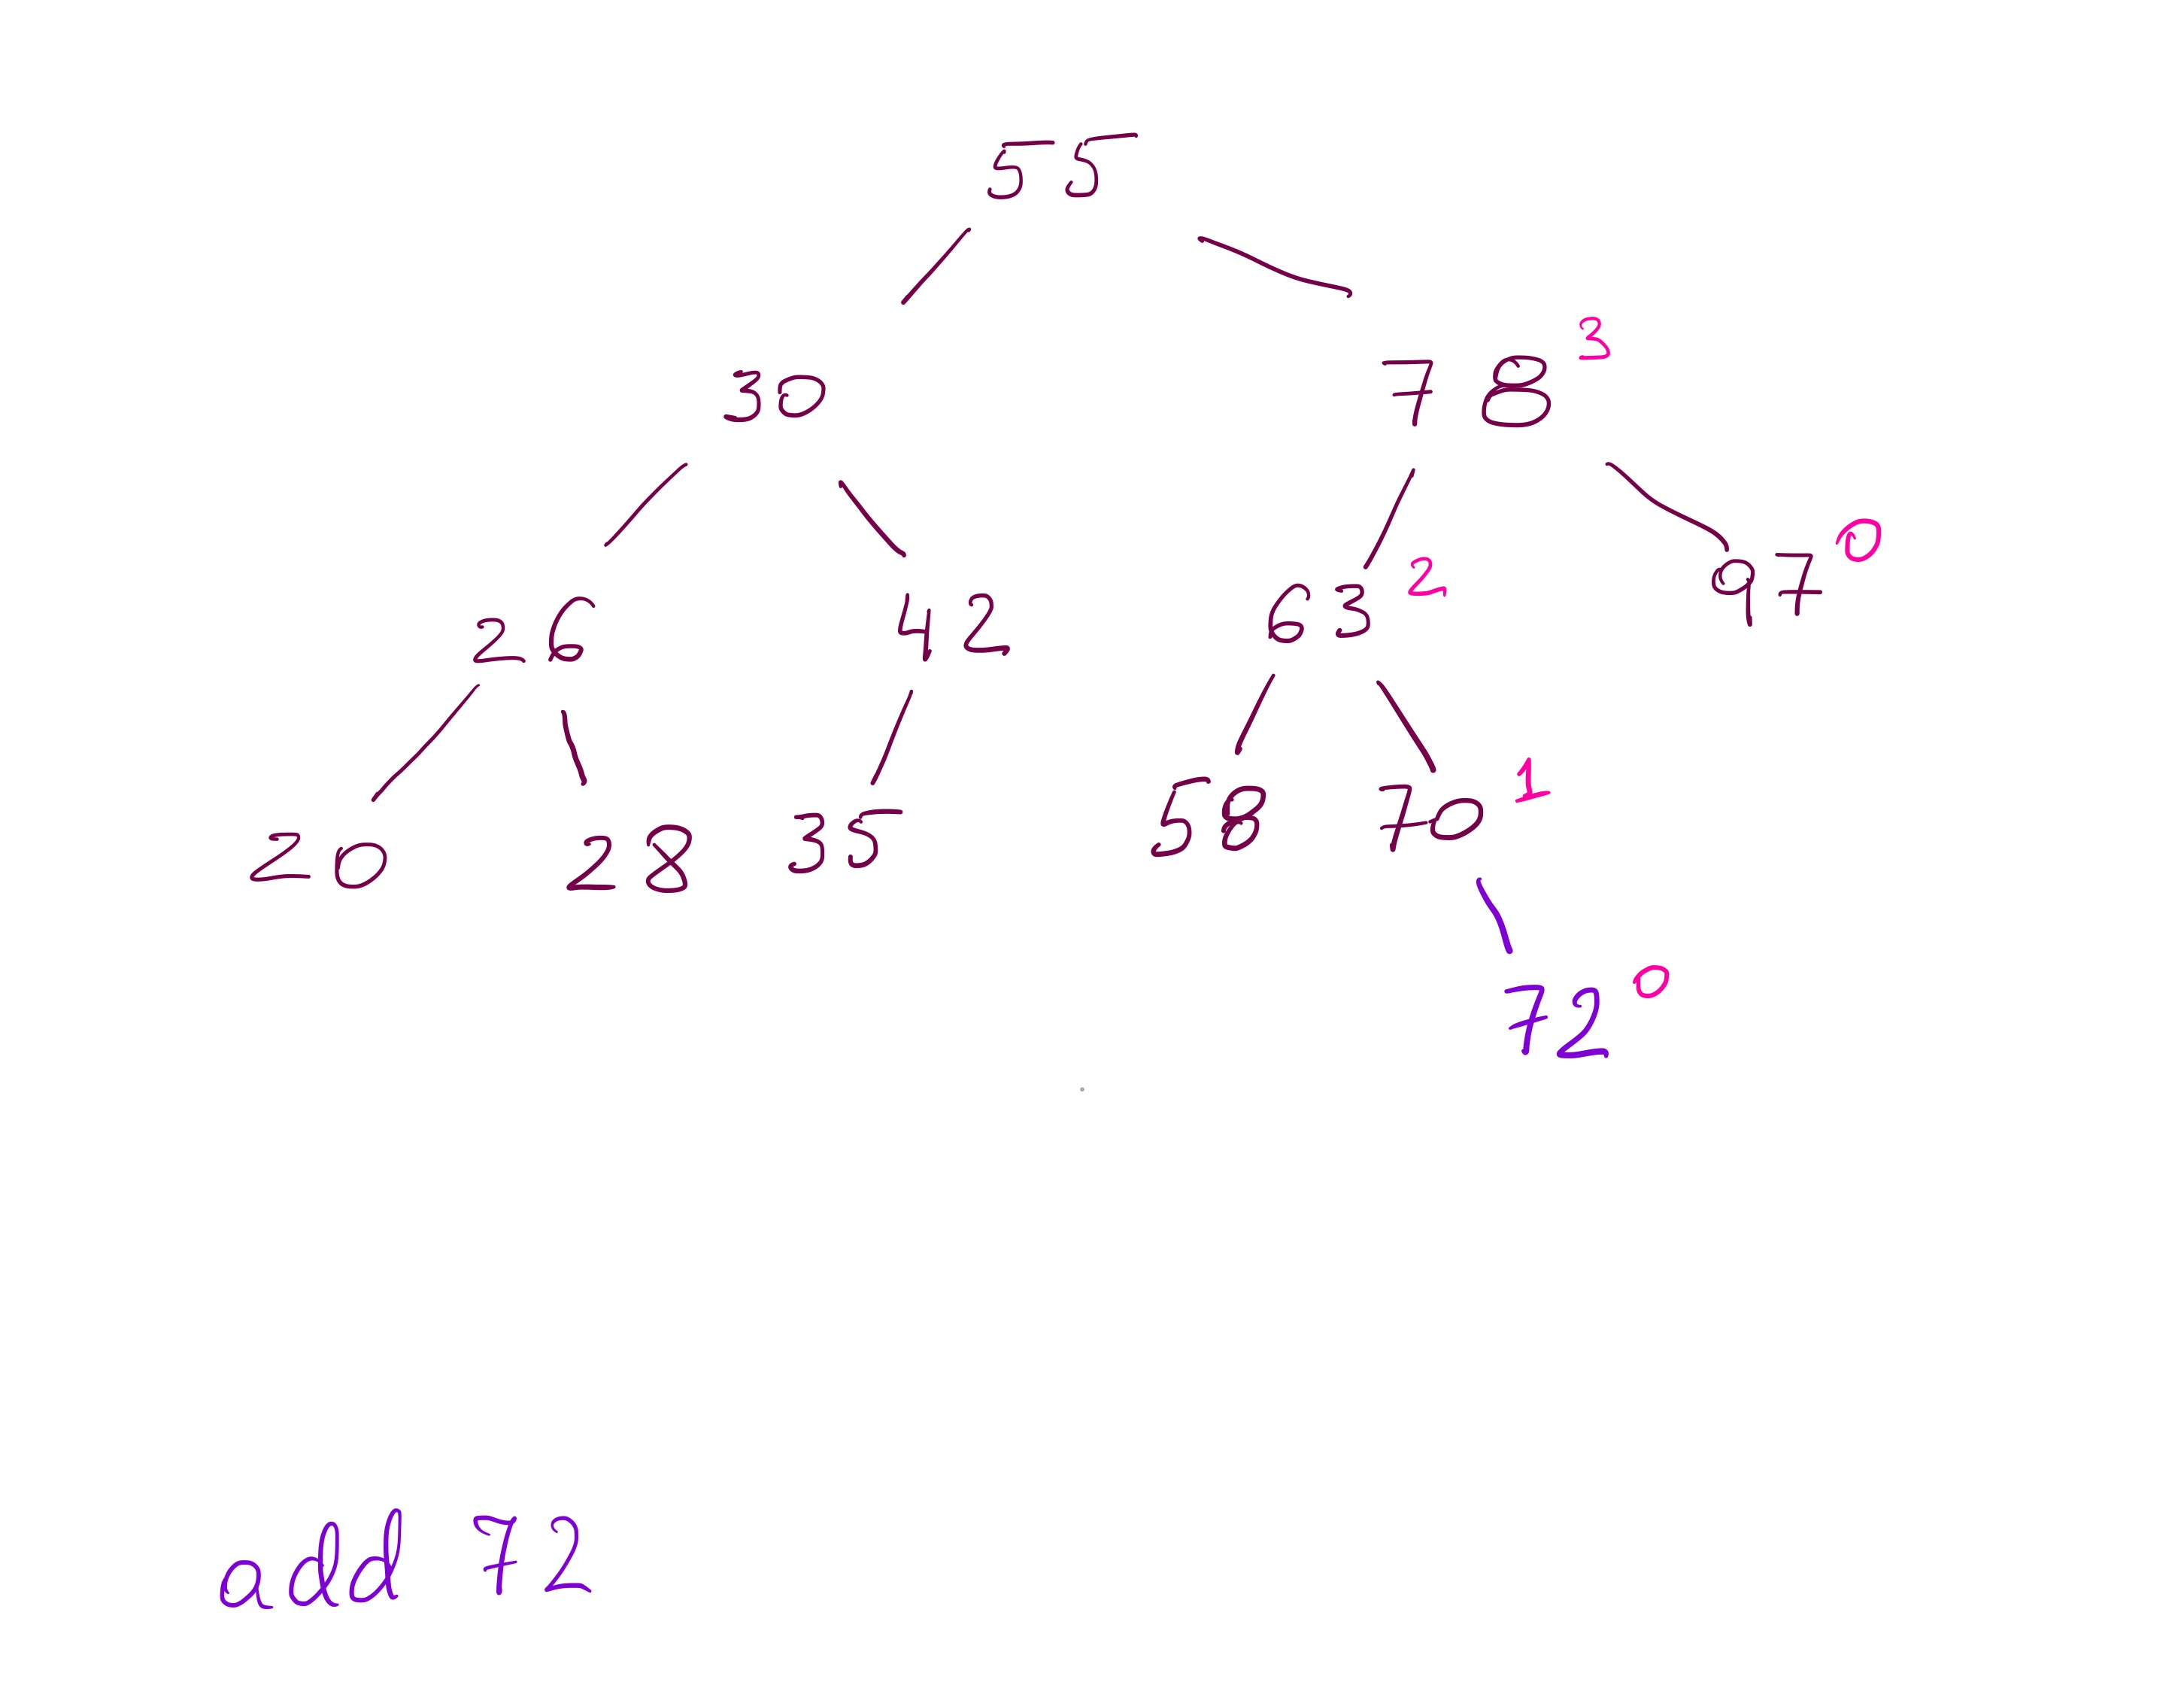 55
30 78 3
26 42 63 2 97 0
20 28 35 58 70 1
72 0
add 72